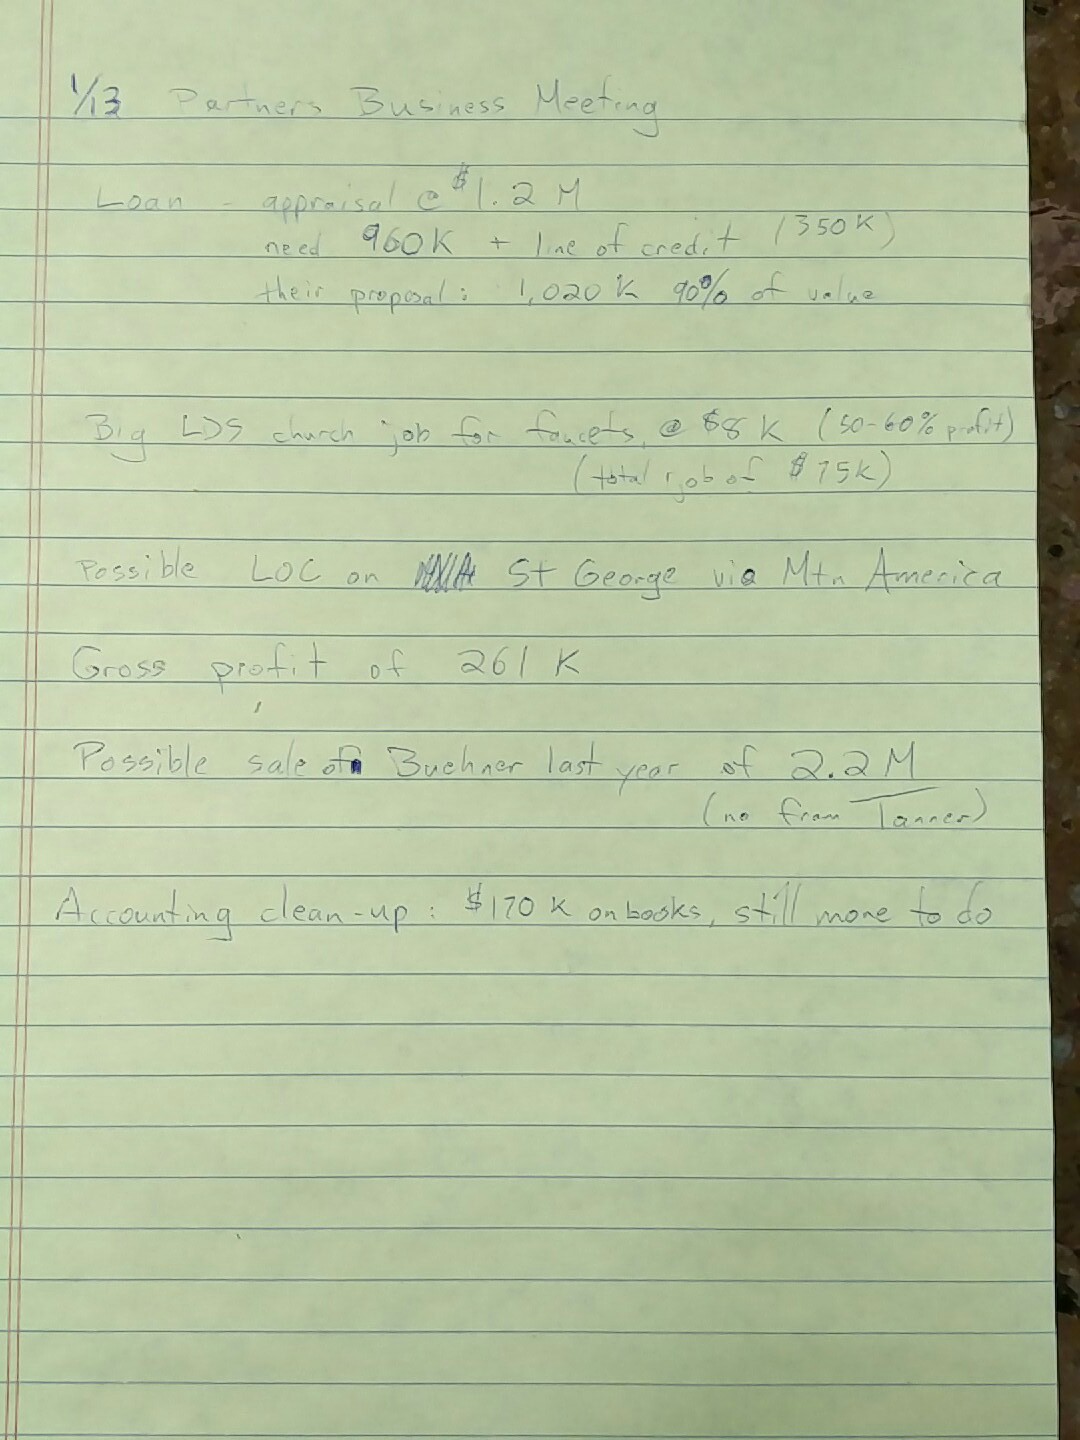 1/13 Partners Business Meeting
Loan - appraisal @ $1.2 M
need 960K + line of credit (350K)
their proposal: 1,020 K 90% of value
Big LDS church job for faucets, @ $8 K (50-60% profit)
(total job of $75K)
Possible LOC on St George via Mtn America
Gross profit of 261 K
Possible sale of Buehner last year of 2.2 M
(no from Tanner)
Accounting clean-up: $170 K on books, still more to do